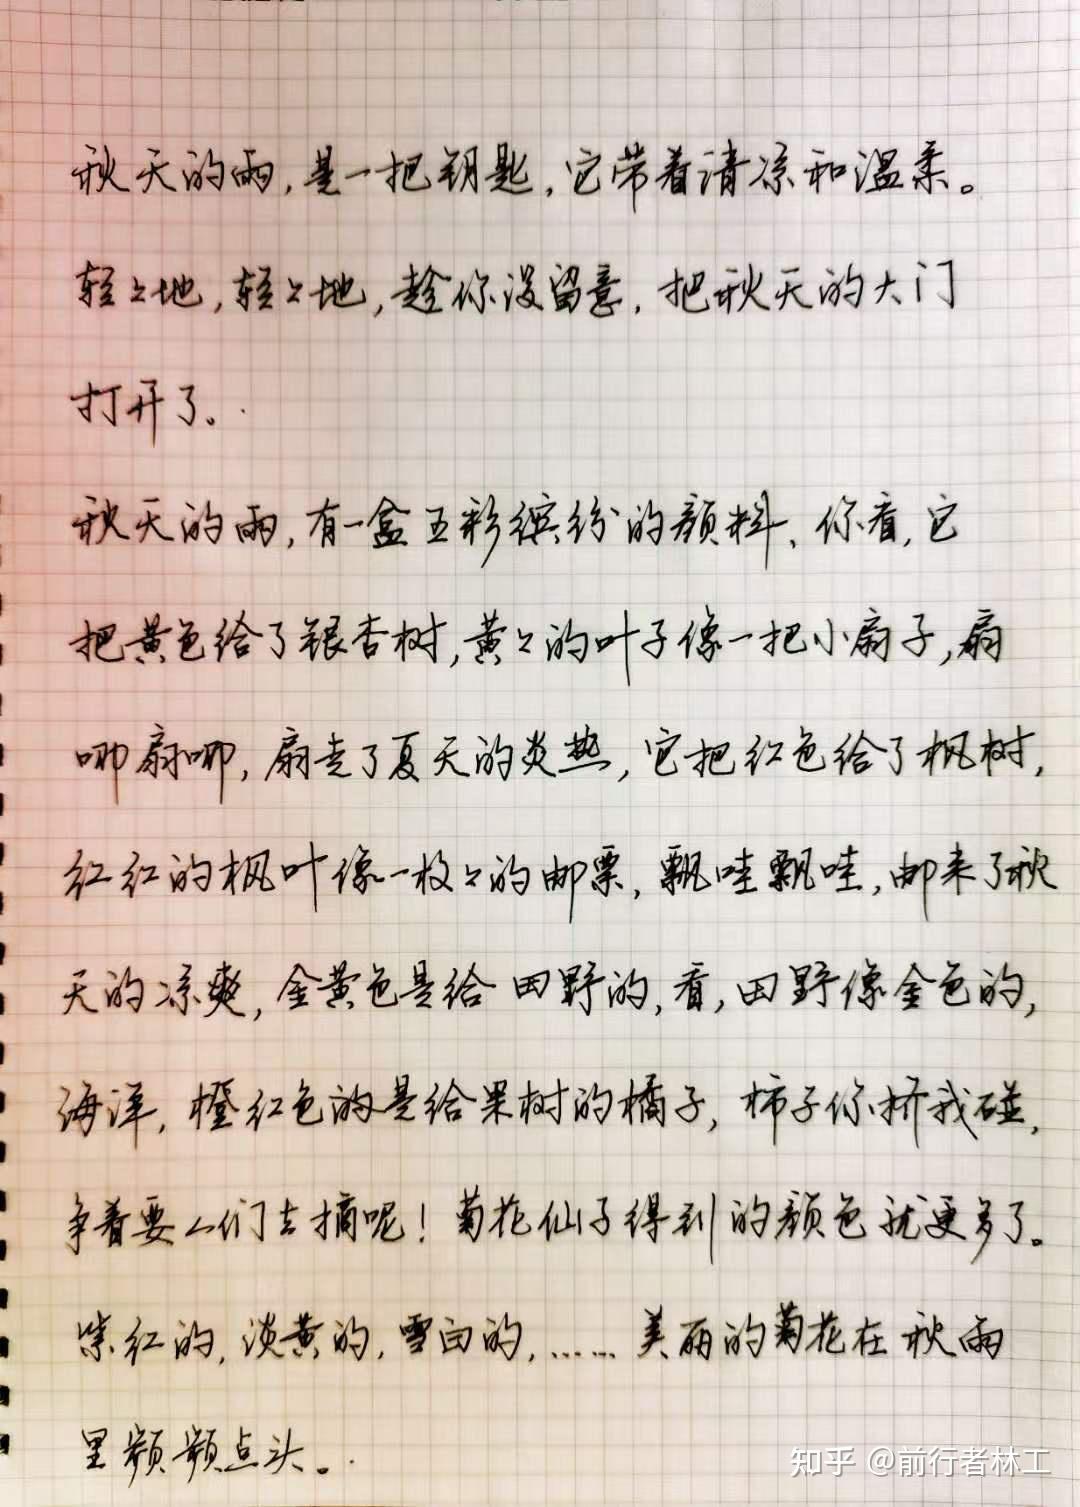 秋天的雨,是一把钥匙,它带着请凉和温柔。
轻々地,轻々地,趁你没留意,把秋天的大门
打开了。
秋天的雨,有一盒五彩缤纷的颜料、你看,它
把黄色给了银杏树,黄々的叶子像一把小扇子,扇
唧扇唧,扇走了夏天的炎热,它把红色给了枫树,
红红的枫叶像一枚々的邮票,飘哇飘哇,邮来了秋
天的凉爽,金黄色是给田野的,看,田野像金色的,
海洋,橙红色的是给果树的橘子,柿子你挤我碰,
争着要人们去摘呢!菊花仙子得到的颜色就更多了。
紫红的,淡黄的,雪白的,……美丽的菊花在秋雨
里频频点头。
知乎 @前行者林工